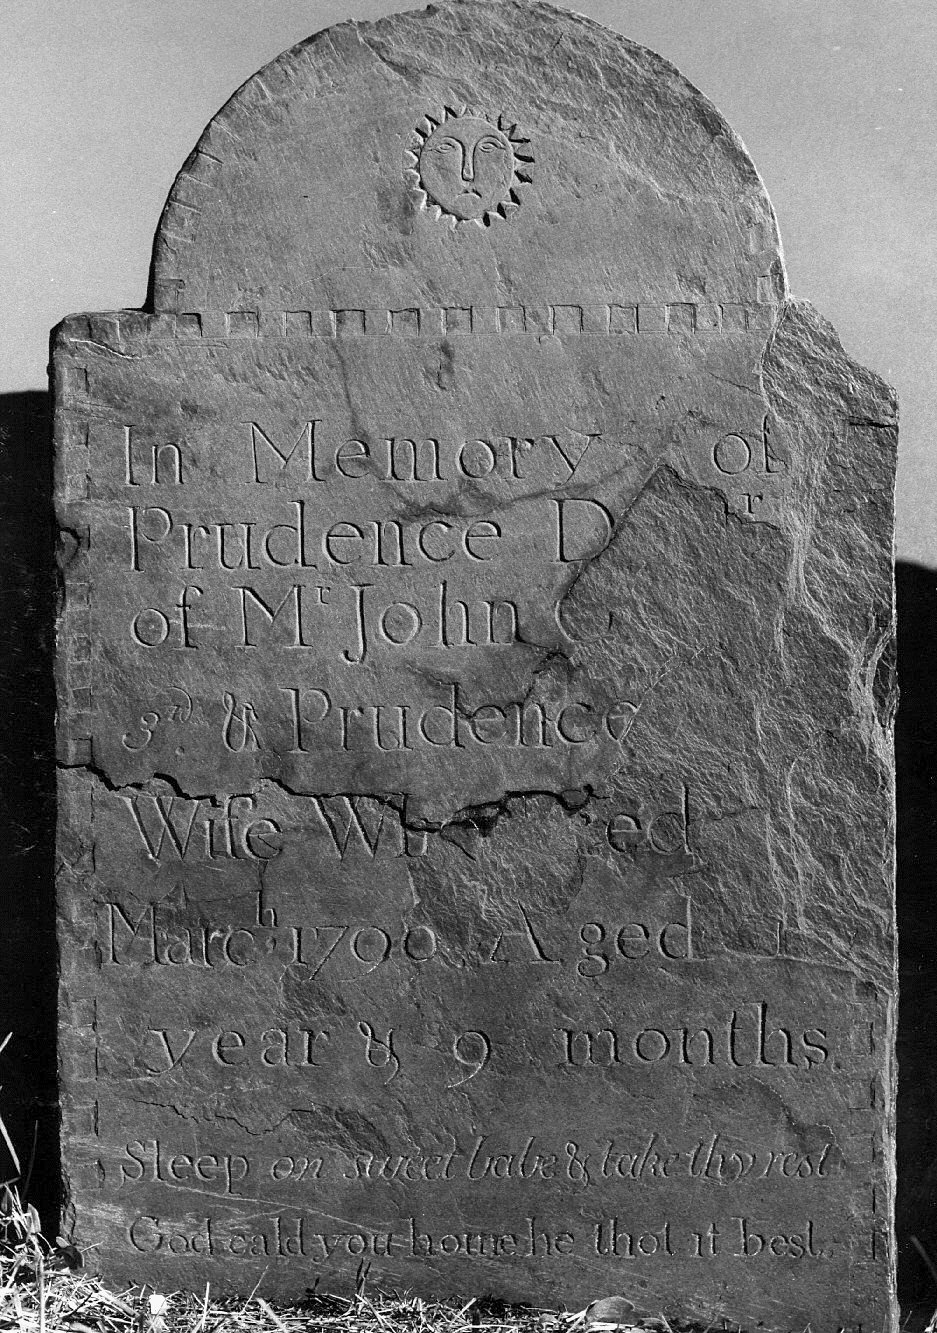 In Memory of
Prudence Dr
of Mr John
3rd & Prudence
Wife Who ed
March 1790 Aged 1
year & 9 months
Sleep on sweet babe & take thy rest
God cald you home he thot it best.